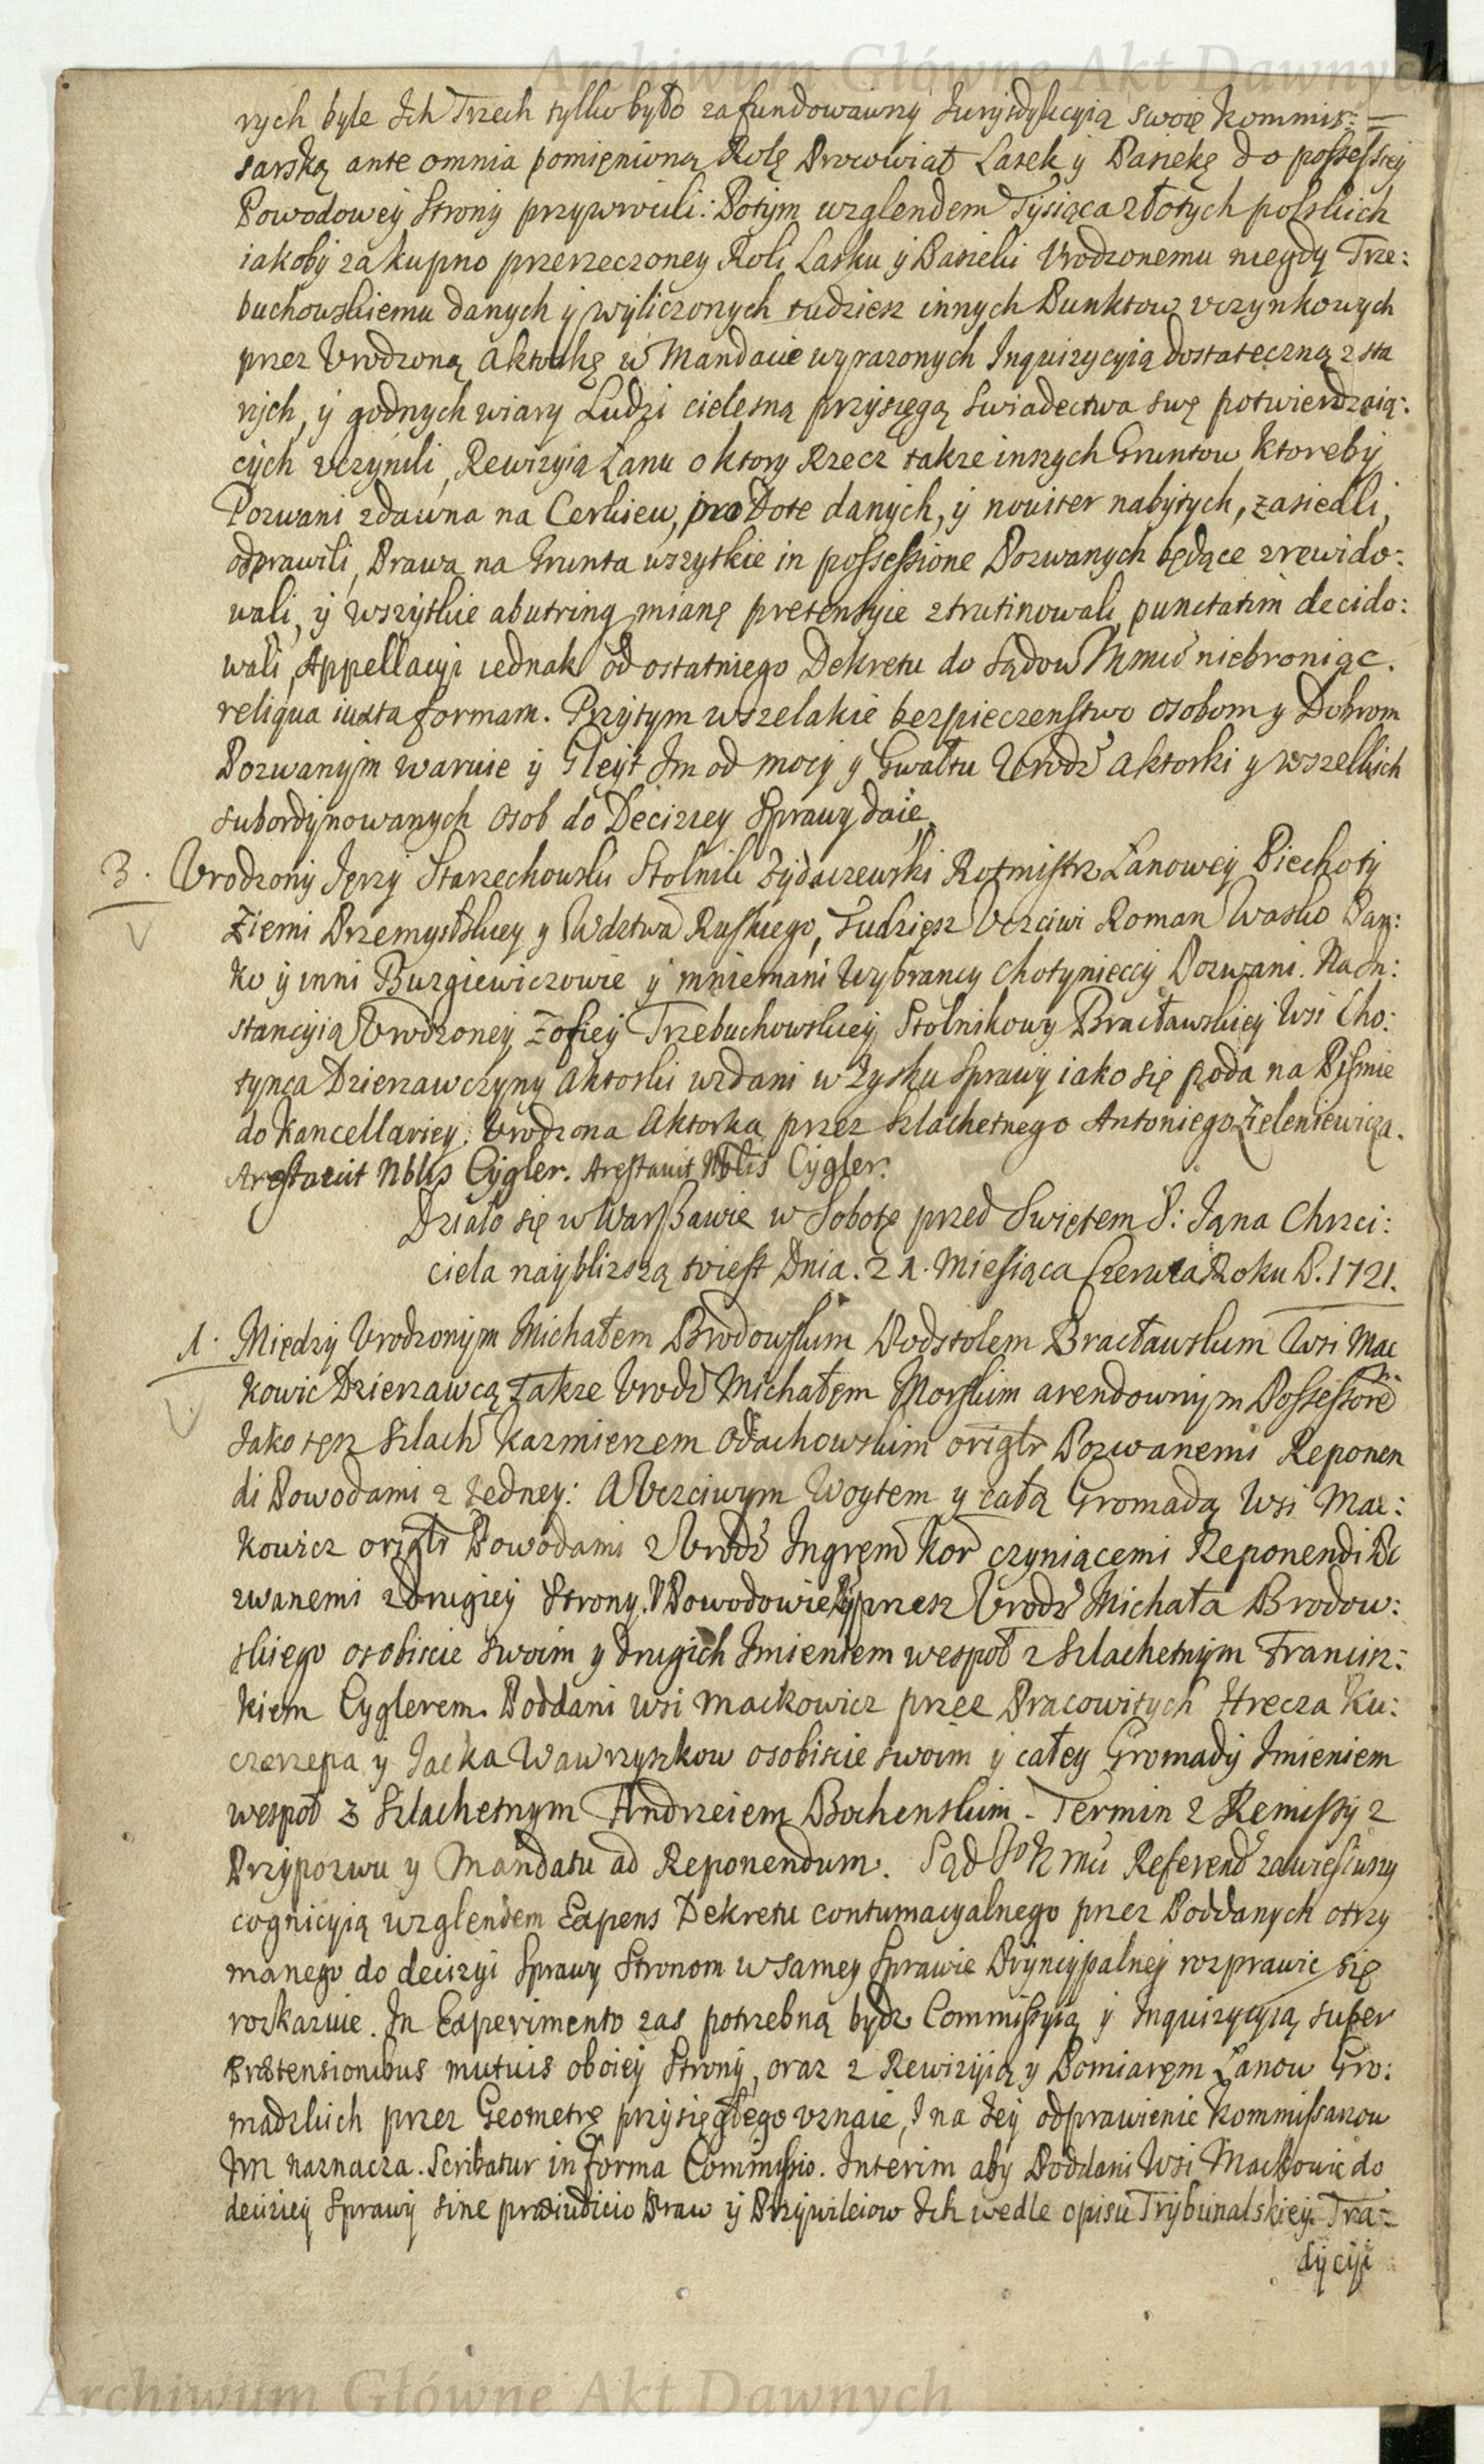 Archiwum Główne Akt Dawnych
rych byle Ich Trzech tylko było zafundowawszy Jurysdykcyią swoię Kommis:
sarską ante omnia pomięnioną Rolę Procowiat Lasek y Pasiekę do possessiey
Powodowey Strony przywrocili: Potym wzglendem Tysiąca złotych polskich
iakoby za kupno przerzeczoney Roli Lasku y Pasieki Urodzonemu niegdy Trze:
buchowskiemu danych y wyliczonych tudziesz innych Punktow uczynkowych
przez Urodzoną Aktorkę w Mandacie wyrazonych Inquizycyią dostateczną z sta
rych, y godnych wiary Ludzi cielesną przysięgą swiadectwa swę potwierdzaią:
cych uczynili, Rewizyią Łanu o ktory Rzecz takze inszych Gruntow ktoreby
Pozwani zdawna na Cerkiew, pro Dote danych, y noviter nabytych, zasiedli,
odprawili, Prawa na Grunta wszytkie in possessione Pozwanych będące zrewido:
wali, y wszytkie abutrinq mianę pretensyie ztrutinowali, punctatim decido:
wali, Appellacyi iednak od ostatniego Dekretu do Sądow niebroniąc.
reliqua iuxta formam. Przytym wszelakie bezpieczenstwo osobom y Dobrom
Pozwanym waruie y Gleyt Im od mocy y Gwałtu Urodz Aktorki y wszelkich
subordynowanych osob do Decizyey Sprawy daie.
3. Urodzony Jęrzy Starzechowski Stolnik Zydaczewski Rotmistrz Łanowey Piechoty
Ziemi Przemyslskiey y Wdztwa Ruskiego, Tudziesz Uczciwi Roman Wasko Pan:
ko y inni Burgiewiczowie y mniemani Wybrancy Chotynieccy Pozwani. Na In:
stancyią Urodzoney Zofiey Trzebuchowskiey Stolnikowy Bracławskiey Wsi Cho:
tynca Dzierzawczyny Aktorki wzdani w Zysku Sprawy iako się poda na Pismie
do Kancellariey. Urodzona Aktorka przez Szlachetnego Antoniego Zieleniewicza.
Arestavit Nblis Cygler. Arestavit Nblis Cygler.
Działo się w Warszawie w Sobotę przed Swiętem S: Jana Chrzci:
ciela nayblizszą to iest Dnia. 21. Miesiąca Czerwca Roku P. 1721.
1. Między Urodzonym Michałem Brodowskim Podstolem Bracławskim Wsi Mac
kowic Dzierzawcą Takze Urodz Michałęm Morskim arendownym Possessore
Jako tęsz Szlach Kazmierzem Odachowskim origtr Pozwanemi Reponen
di Powodami z Iedney: A Uczciwym Woytem y całą Gromadą Wsi Mac:
kowicz origtr Powodami z Urodz Ingręm Kor czyniącemi Reponendi Po
zwanemi z drugiey Strony. Powodowie przesz Urodz Michała Brodow:
skiego osobiscie swoim y drugich Imieniem wespoł z Szlachetnym Francisz:
kiem Cyglerem. Poddani wsi Mackowicz przez Pracowitych Hrecza Ku:
czerzepa y Jacka Wawrzyszkow osobiscie swoim y całey Gromady Imieniem
wespoł z Szlachetnym Andrzeiem Bochenskim. Termin z Remissy z
Przypozwu y Mandatu ad Reponendum. Sąd Referend zawiesiwszy
cognicyią wzglendem Expens Dekretu contumacyalnego przez Poddanych otrzy
manego do decizyi Sprawy Stronom w samey Sprawie Pryncypalney rozprawic się
roskazuie. In Experimento zas potrzebną bydz Commissyią y Inquizycyią super
prætensionibus mutuis oboiey Strony, oraz z Rewizyią y Pomiaręm Łanow Gro:
madzkich przez Geometrę przysięgłego uznaie, I na Iey odprawienie Kommissarzow
Im naznacza. Scribatur in forma Commissio. Interim aby Poddani Wsi Mackowic do
decizyey Sprawy sine præiudicio Praw y Przywileiow Ich wedle opisu Trybunalskiey Tra:
dycyi
Archiwum Główne Akt Dawnych